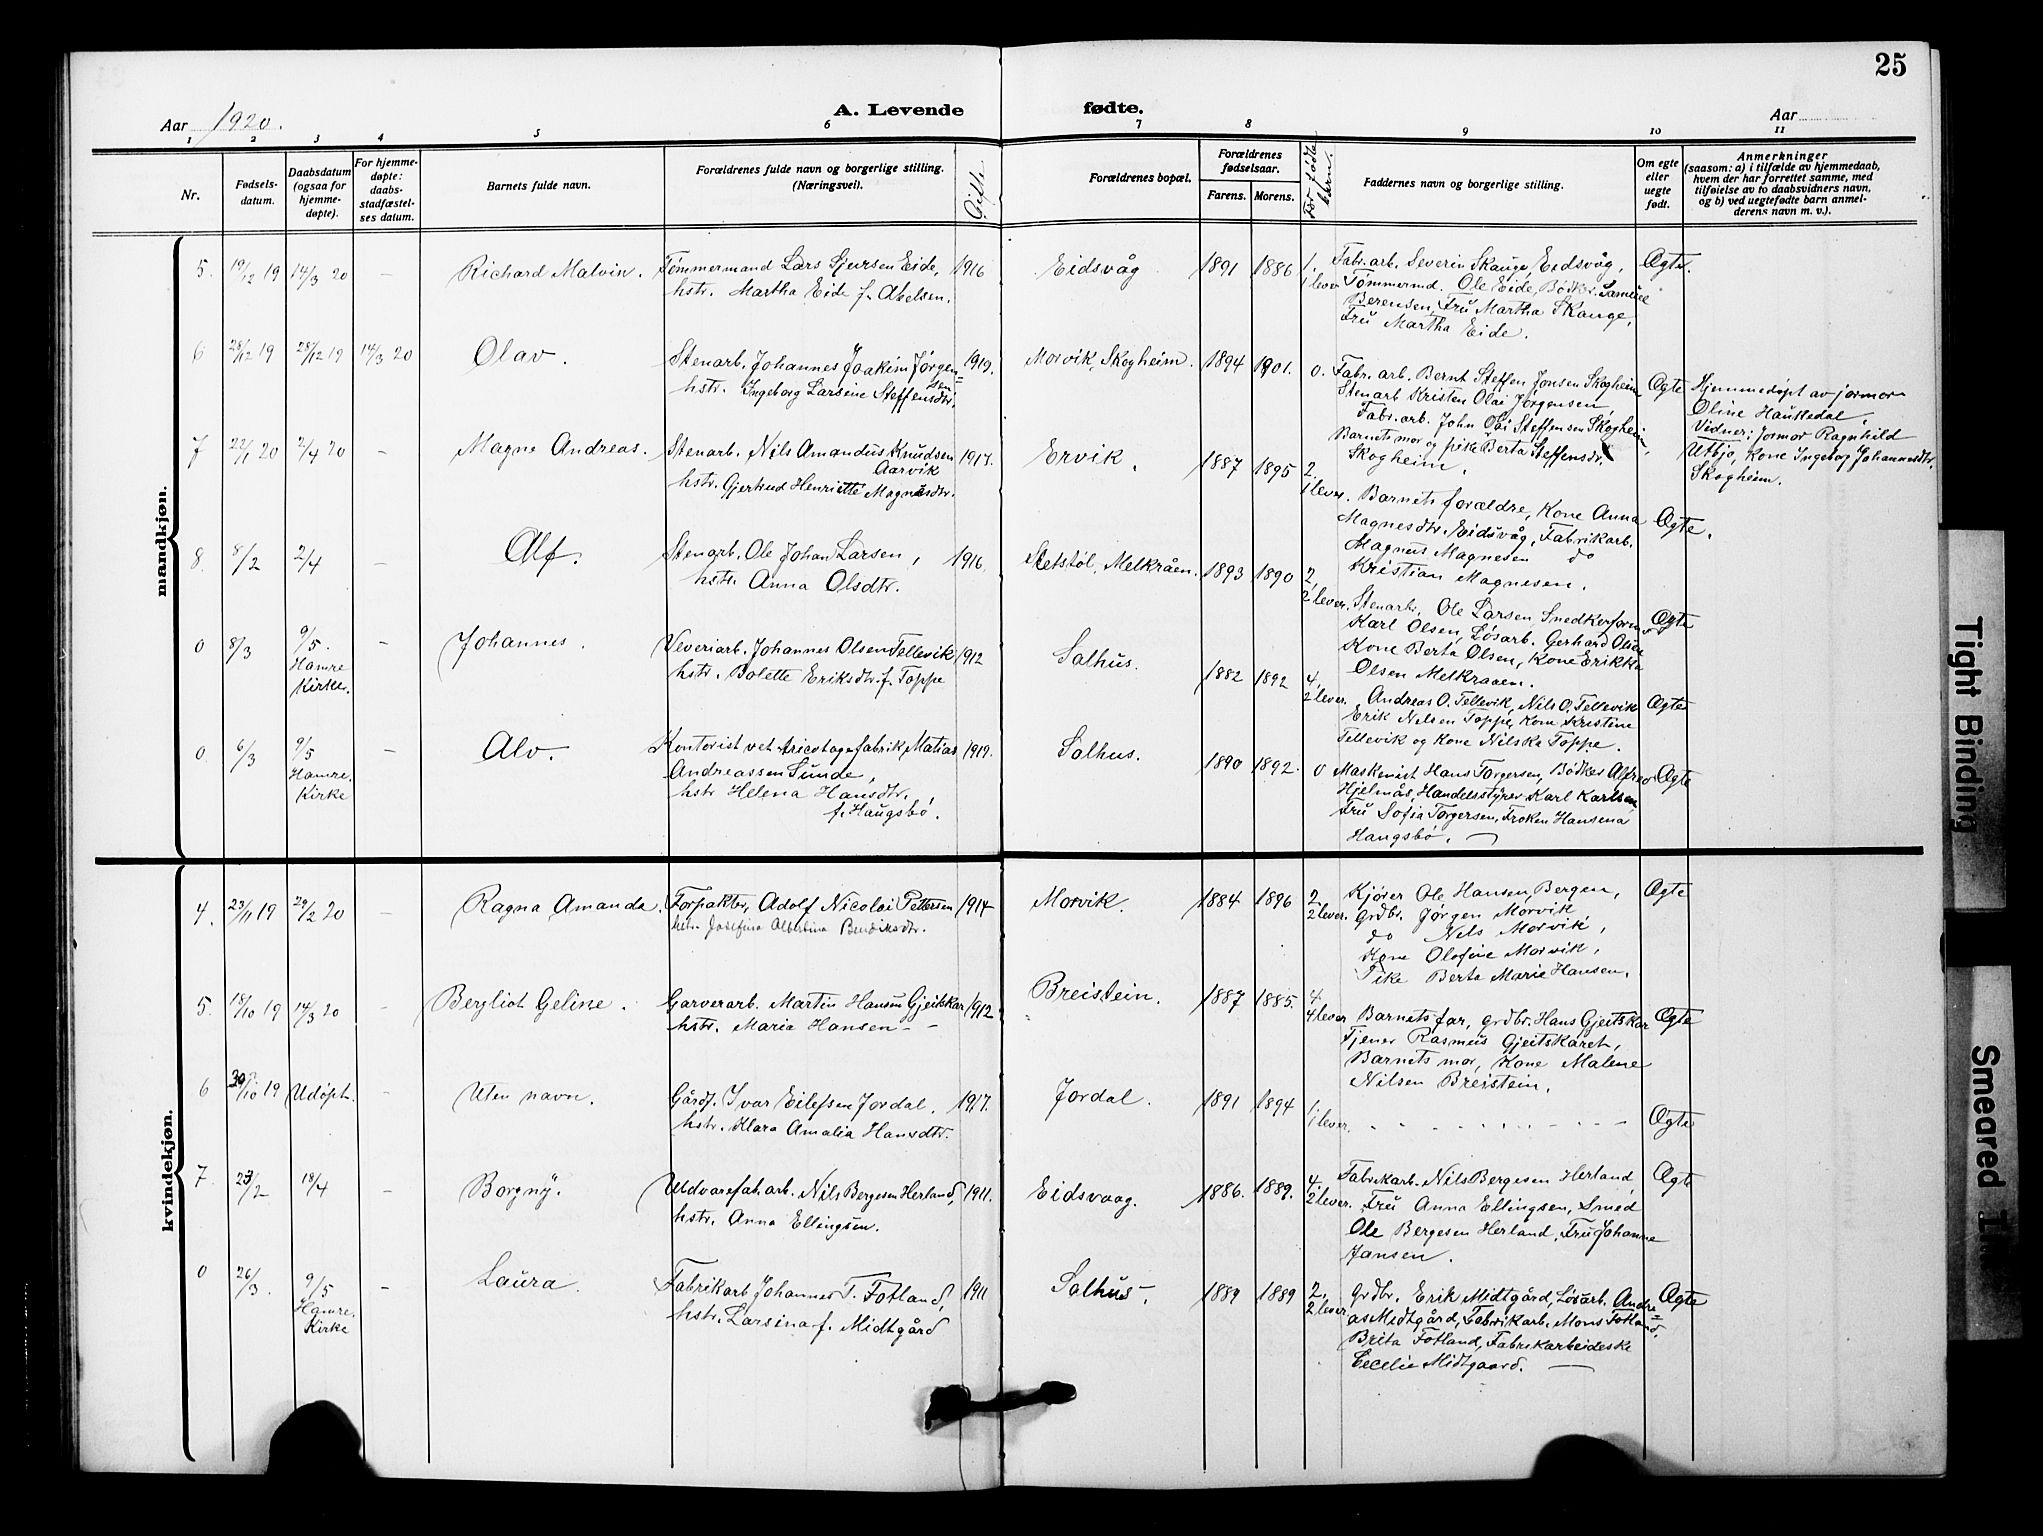 25
A. Levende fødte.
Aar 1920.
Aar
1 2 3 4 5 6 7 8 9 10 11
Nr.
Fødsels-
datum.
Daabsdatum
(ogsaa for
hjemme-
døpte).
For hjemme-
døpte:
daabs-
stadfæstel-
ses datum.
Barnets fulde navn.
Forældrenes fulde navn og borgerlige stilling.
(Næringsvei).
Gifte
Forældrenes bopæl.
Forældrenes
fødselsaar.
Farens. Morens.
Før fødte
barn.
Faddernes navn og borgerlige stilling.
Om egte
eller
uegte
født.
Anmerkninger
(saasom: a) i tilfælde av hjemmedaab,
hvem der har forrettet samme, med
tilføielse av to daabsvidners navn,
og b) ved uegtefødte barn anmel-
derens navn m. v.).
mandkjøn.
5. 19/12 19 14/3 20 - Richard Malvin. Tømmermand Lars Sjursen Eide, 1916 Eidsvåg 1891 1886 1. Fabr. arb. Severin Skauge, Eidsvåg, Ægte.
hstr. Martha Eide f. Abelsen. 1 lever Tømmermd. Ole Eide, Bødker Samuel
Berensen, Fru Martha Skauge,
Fru Martha Eide.
6 28/12 19 28/12 19 14/3 20 Olav. Stenarb. Johannes Joakim Jørgen= 1919. Morvik, Skogheim. 1894 1901. 0. Fabr. arb. Bernt Steffen Jonsen Skogheim Ægte Hjemmedøpt av jormor
sen
hstr. Ingeborg Larsine Steffensdtr. Stenarb Kristen Olai Jørgensen Oline Haukedal.
Fabr. arb. John Olai Steffensen Skogheim, Vidner: Jormor Ragnhild
Barnets mor og pike Berta Steffensdtr. Utbjo, Kone Ingebor Johannesdtr.
Skogheim. Skogheim.
7 22/1 20 2/4 20 - Magne Andreas. Stenarb. Nils Amandus Knudsen 1917. Ervik. 1887 1895 2.
Aarvik
hstr. Gjertrud Henriette Magnesdtr. 1 lever. Barnets forældre, Kone Anna Ægte.
Magnesdtr. Eidsvåg, Fabrikarb.
Magnus Magnesen do
Kristian Magnesen.
8. 8/2 2/4 - Alf. Stenarb. Ole Johan Larsen, 1916. Sletstøl, Melkråen. 1893 1890 2,
hstr. Anna Olsdtr. 2 lever. Stenarb. Ole Larsen, Smedkerformand Ægte
Karl Olsen, Løsarb. Gerhard Olsen
Kone Berta Olsen, Kone Erikka
Olsen Melkraaen.
0 8/3 9/5. - Johannes. Veveriarb. Johannes Olsen Tellevik 1912 Salhus. 1882 1892 4,
Hamre
Kirke. hstr. Bolette Eriksdtr. f. Toppe 2 lever. Andreas O. Tellevik, Nils O. Tellevik Ægte
Erik Nilsen Toppe, Kone Kristine
Tellevik og Kone Nilska Toppe.
0. 6/3 9/5 - Alv. Kontorist vet tricotagefabrik Matias 1919. Salhus. 1890 1892. 0 Maskenist Hans Torgersen, Bødker Alfred Ægte
Hamre.
Kirke Andreassen Sunde, Hjelmås, Handelsstyrer Karl Karlsen
hstr Helena Hansdtr. Fru Sofia Torgersen, Frøken Hansena
f. Haugsbø. Haugsbø.
kvindekjøn.
4. 23/11 19 29/2 20 - Ragna Amanda. Forpakter, Adolf Nicolai Pettersen 1914 Morvik. 1884 1896 2 Kjører Ole Hansen, Bergen, Ægte
hstr. Josefina Albertina Bendiksdtr. 2 lever. grdbr. Jørgen Morvik
do Nils Morvik,
Kone Olefine Morvik,
Pike Berta Marie Hansen.
5. 18/10 19 14/3 20 - Bergliot Geline. Garverarb. Martin Hansen Gjeitskar 1912 Breistein. 1887 1885. 4
hstr. Maria Hansen - - 4 lever Barnets far, grdbr. Hans Gjeitskar Ægte
Tjener Rasmus Gjeitskaret,
Barnets mor, Kone Malene
Nilsen Breistein.
6 30/10 19 Udøpt. - Uten navn. Gårdf. Ivar Eilefsen Jordal. 1917. Jordal. 1891 1894 1,
hstr. Klara Amalia Hansdtr. 1 lever. - - - - - - - - Ægte
7. 23/2 18/4 - Borgny. Uldvarefab. arb. Nils Bergesen Herland, 1911. Eidsvaag. 1886. 1889. 4, Fabrikarb. Nils Bergesen Herland, Ægte
hstr. Anna Ellingsen. 2 lever. Fru Anna Ellingsen, Smed
Ole Bergesen Herland, Fru Johanne
Jansen.
0 26/3. 9/5 - Laura. Fabrikarb Johannes T. Fotland, 1911 Salhus. 1889 1889 2, grdbr. Erik Midtgård, Løsarb. Andre= Ægte
Hamre.
Kirke hstr. Larsina f. Midtgård 2 lever. as Midtgård, Fabrikarb. Mons Fotland.
Brita Fotland, Fabrikarbeideske
Cecelie Midtgaard.
Tight Binding
Smeared